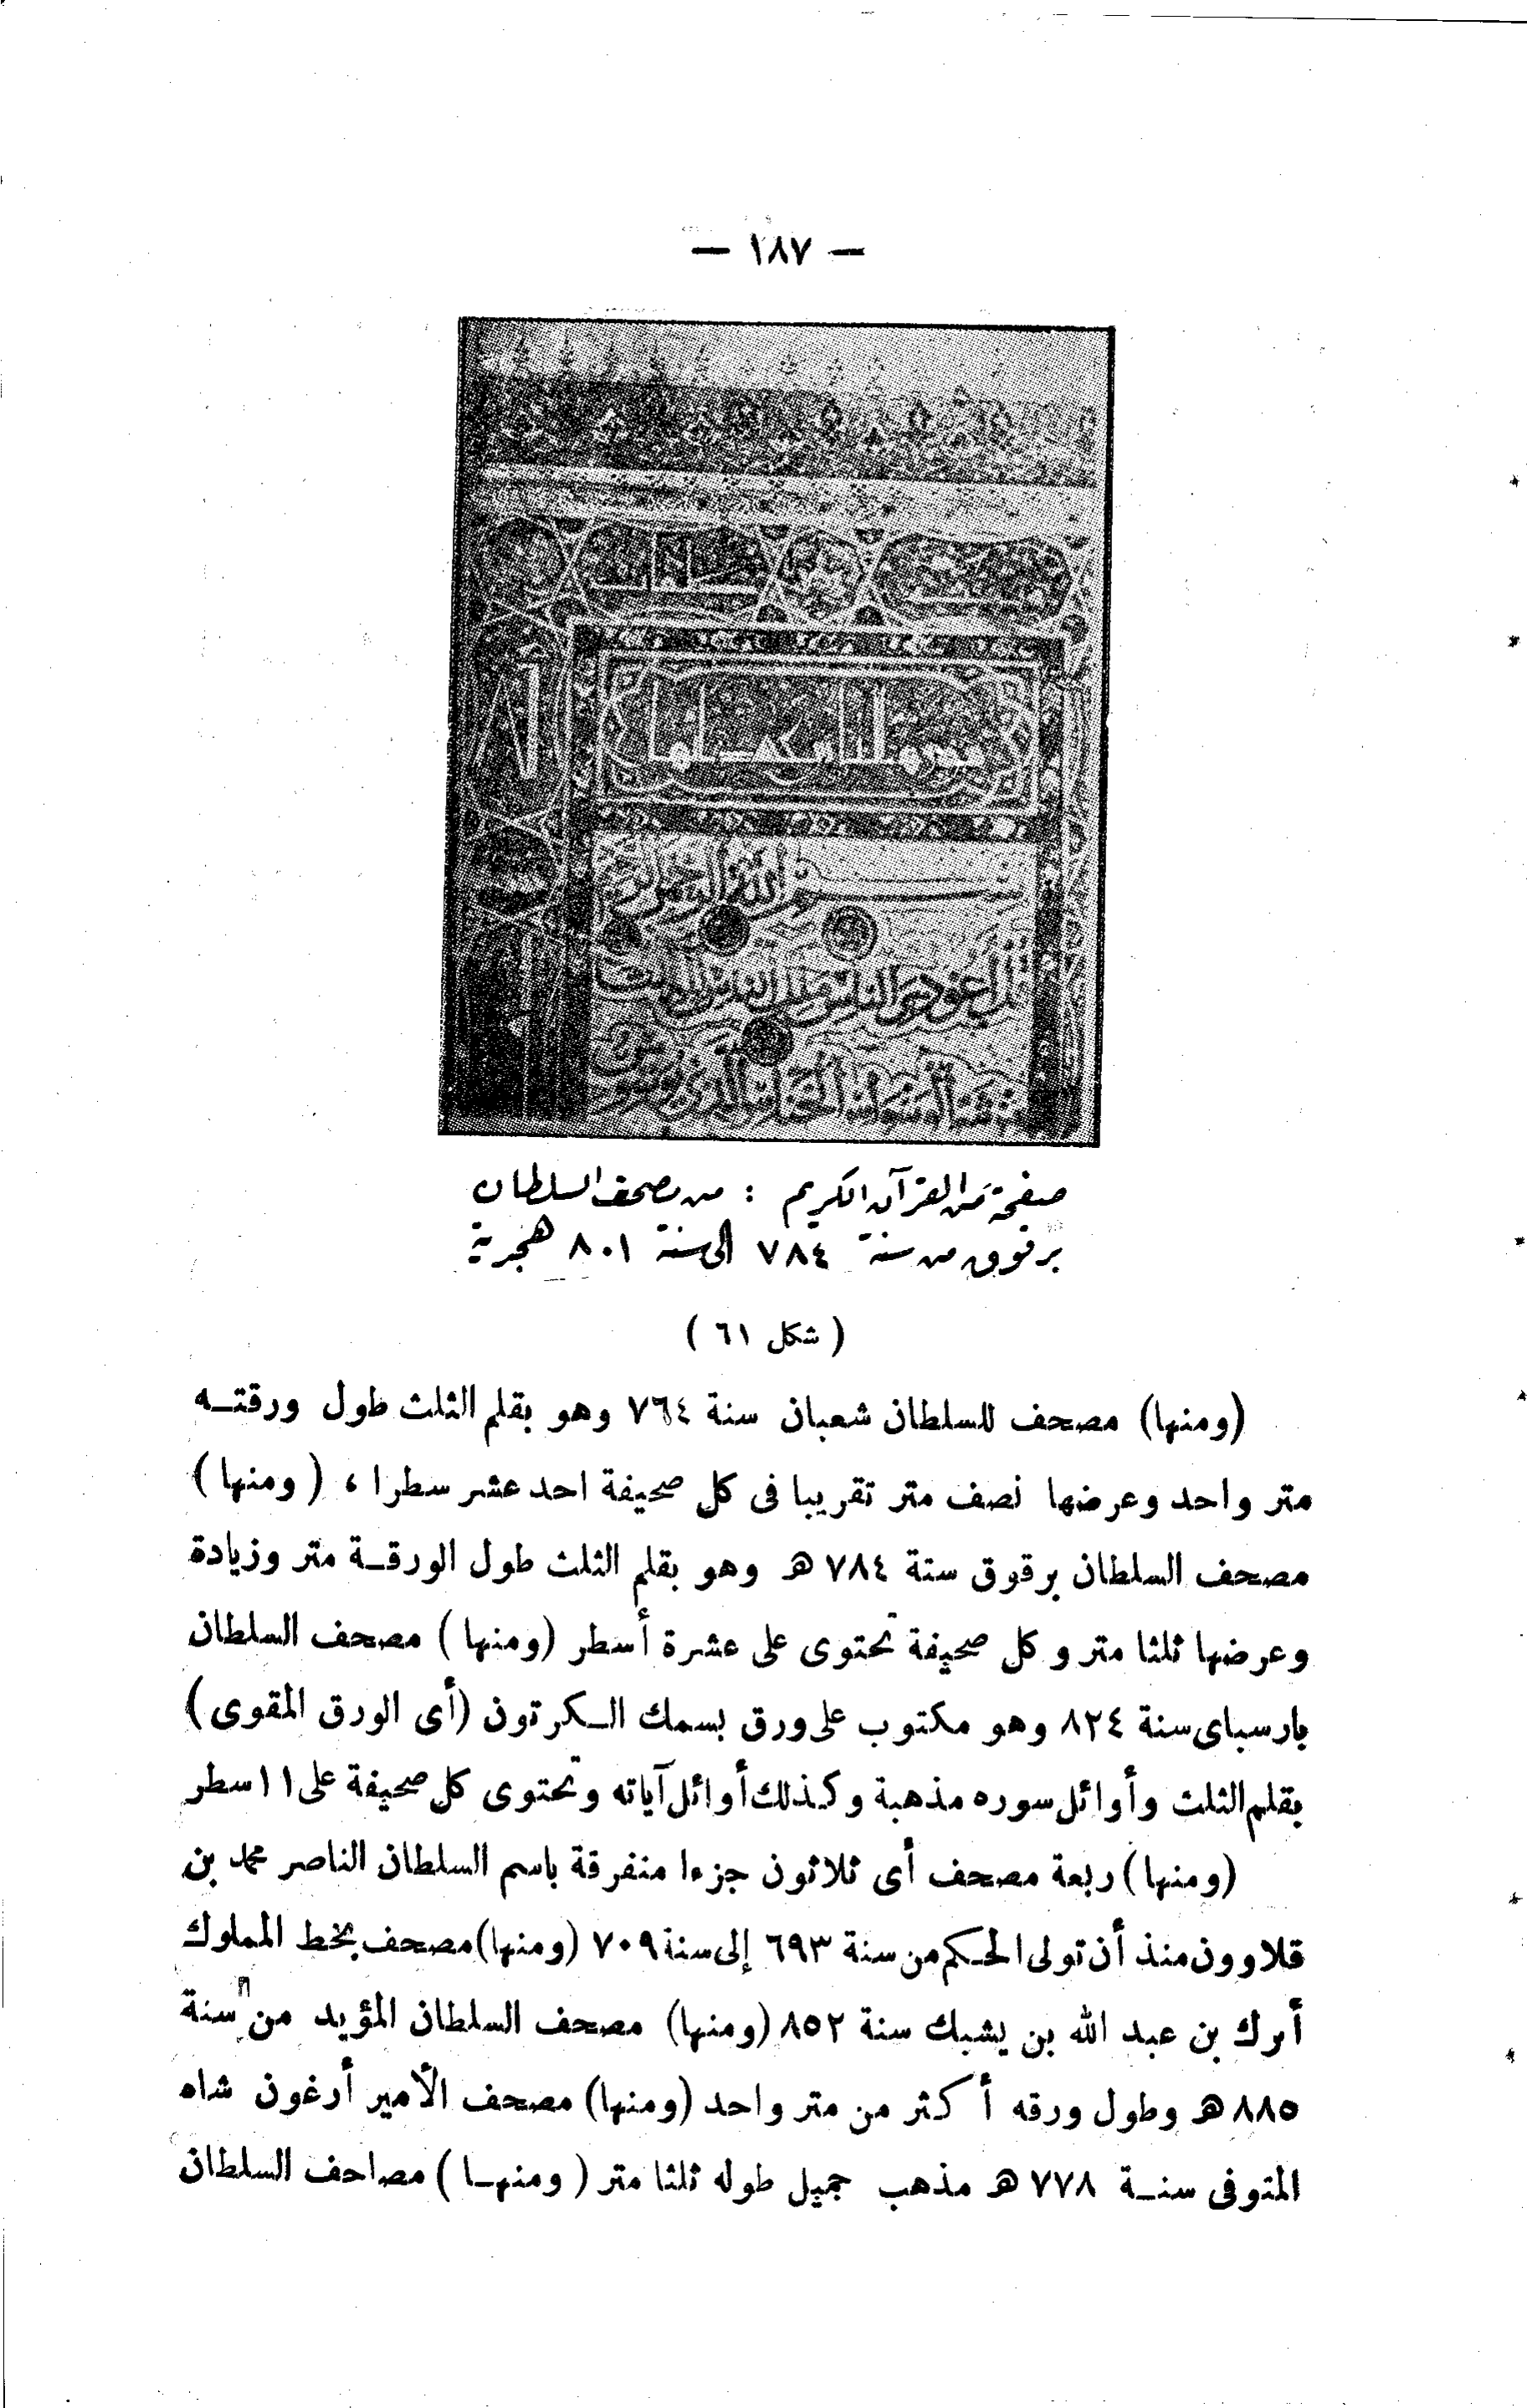 — ١٨٧ —
بسم الله الرحمن الرحيم
قل أعوذ برب الناس ملك الناس إله
الوسواس الخناس الذي يوسوس
صفحة من القرآن الكريم : من مصحف السلطان
برقوق من سنة ٧٨٤ الى سنة ٨٠١ هجرية
( شكل ٦١ )
(ومنها) مصحف للسلطان شعبان سنة ٧٦٤ وهو بقلم الثلث طول ورقتـه
متر واحد وعرضها نصف متر تقريبا فى كل صحيفة احد عشر سطرا ، ( ومنها )
مصحف السلطان برقوق سنة ٧٨٤ هـ وهو بقلم الثلث طول الورقـة متر وزيادة
وعرضها ثلثا متر وكل صحيفة تحتوى على عشرة أسطر (ومنها ) مصحف السلطان
بارسباى سنة ٨٢٤ وهو مكتوب على ورق بسمك الـكرتون (أى الورق المقوى)
بقلم الثلث وأوائل سوره مذهبة وكذلك أوائل آياته وتحتوى كل صحيفة على ١١ سطر
(ومنها) ربعة مصحف أى ثلاثون جزءا متفرقة باسم السلطان الناصر محمد بن
قلاوون منذ أن تولى الحـكم من سنة ٦٩٣ إلى سنة ٧٠٩ (ومنها) مصحف بخط المملوك
أبرك بن عبد الله بن يشبك سنة ٨٥٢ (ومنها) مصحف السلطان المؤيد من سنة
٨٨٥ هـ وطول ورقه أكثر من متر واحد (ومنها) مصحف الأمير أرغون شاه
المتوفى سنـة ٧٧٨ هـ مذهب جميل طوله ثلثا متر ( ومنهـا ) مصاحف السلطان